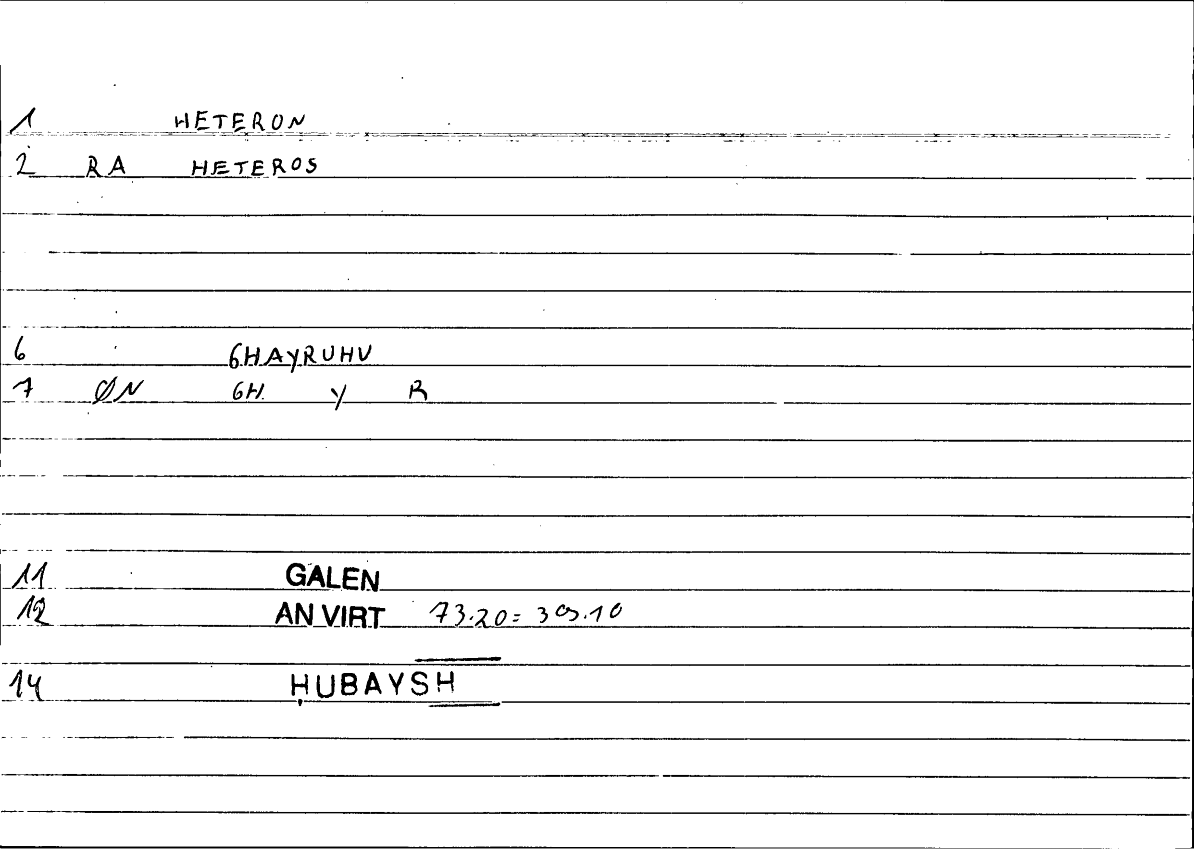 1 HETERON
2 RA HETEROS
6 GHAYRUHU
7 ØN GH Y R
11 GALEN
12 AN VIRT 73.20 = 309.10
14 ḤUBAYSH